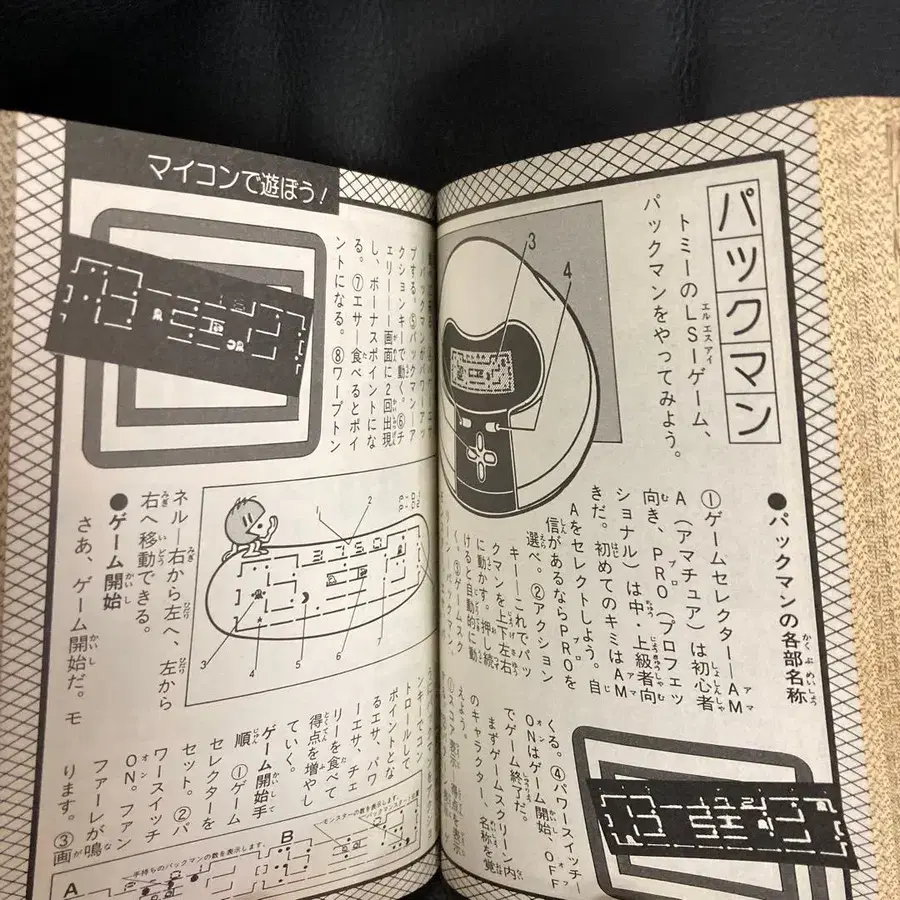 パックマン
トミーのLSIゲーム、
パックマンをやってみよう。
3
4
●パックマンの各部名称
①ゲームセレクター―AM
A(アマチュア)は初心者
向き、PRO(プロフェッ
ショナル)は中・上級者向
きだ。初めてのキミはAM
Aをセレクトしよう。自
信があるならPROを
選べ。②アクション
キー―これでパッ
クマンを上下左右
に動かす。押し続
けると自動的に動
く。③ゲームスク
くる。④パワースイッチ―
ONはゲーム開始、OFF
でゲーム終了だ。
まずゲームスクリーン内
のキャラクター、名称を覚
えよう。
マイコンで遊ぼう!
プする。⑤パックマン―ア
クションキーで動く。⑥チ
ェリー―画面に2回出現
し、ボーナスポイントにな
る。⑦エサ―食べるとポイ
ントになる。⑧ワープトン
1
2
3750
3
4
5
6
7
ネル―右から左へ、左から
右へ移動できる。
●ゲーム開始
さあ、ゲーム開始だ。モ
トロールして
ポイントとな
るエサ、パワ
ーエサ、チェ
リーを食べて
得点を増やし
ていく。
ゲーム開始手
順 ①ゲーム
セレクターを
セット。②パ
ワースイッチ
ON。ファン
ファーレが鳴
ります。③画
モンスターの数を表示します。
B
手持ちのパックマンの数を表示します。
A